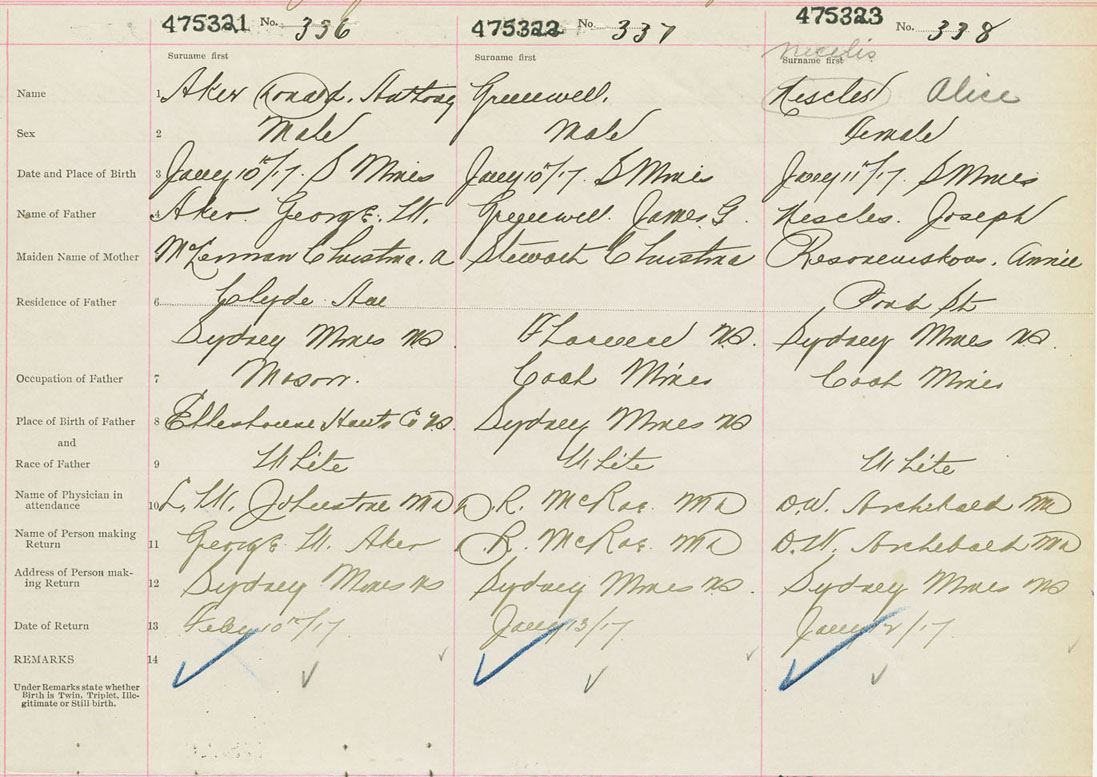 475321 No. 336 475322 No. 337 475323 No. 338
Surname first Surname first Surname first
Name 1 Aker Ronald. Anthony Greenwell. Nescles Alice
Sex 2 Male Male Female
Date and Place of Birth 3 Jany 10th/17. S Mines Jany 10th/17. S Mines Jany 11th/17. S Mines
Name of Father 4 Aker George. W. Greenwell. James G. Nescles. Joseph
Maiden Name of Mother Christina. A Christina Annie
Residence of Father 6 Clyde Ave Pond St
Sydney Mines NS. Florence NS. Sydney Mines NS.
Occupation of Father 7 Mason. Coal Mines Coal Mines
Place of Birth of Father 8 Ellershouse Hants Co NS. Sydney Mines NS
and
Race of Father 9 White White White
Name of Physician in
attendance 10 L. W. Johnstone MD R. McRae. MD D.W. Archibald MD
Name of Person making
Return 11 George. W. Aker R. McRae. MD D.W. Archibald MD
Address of Person mak-
ing Return 12 Sydney Mines NS Sydney Mines NS. Sydney Mines NS
Date of Return 13 Feby 10th/17 Jany 13/17 Jany 12/17
REMARKS 14
Under Remarks state whether
Birth is Twin, Triplet, Ille-
gitimate or Still birth.